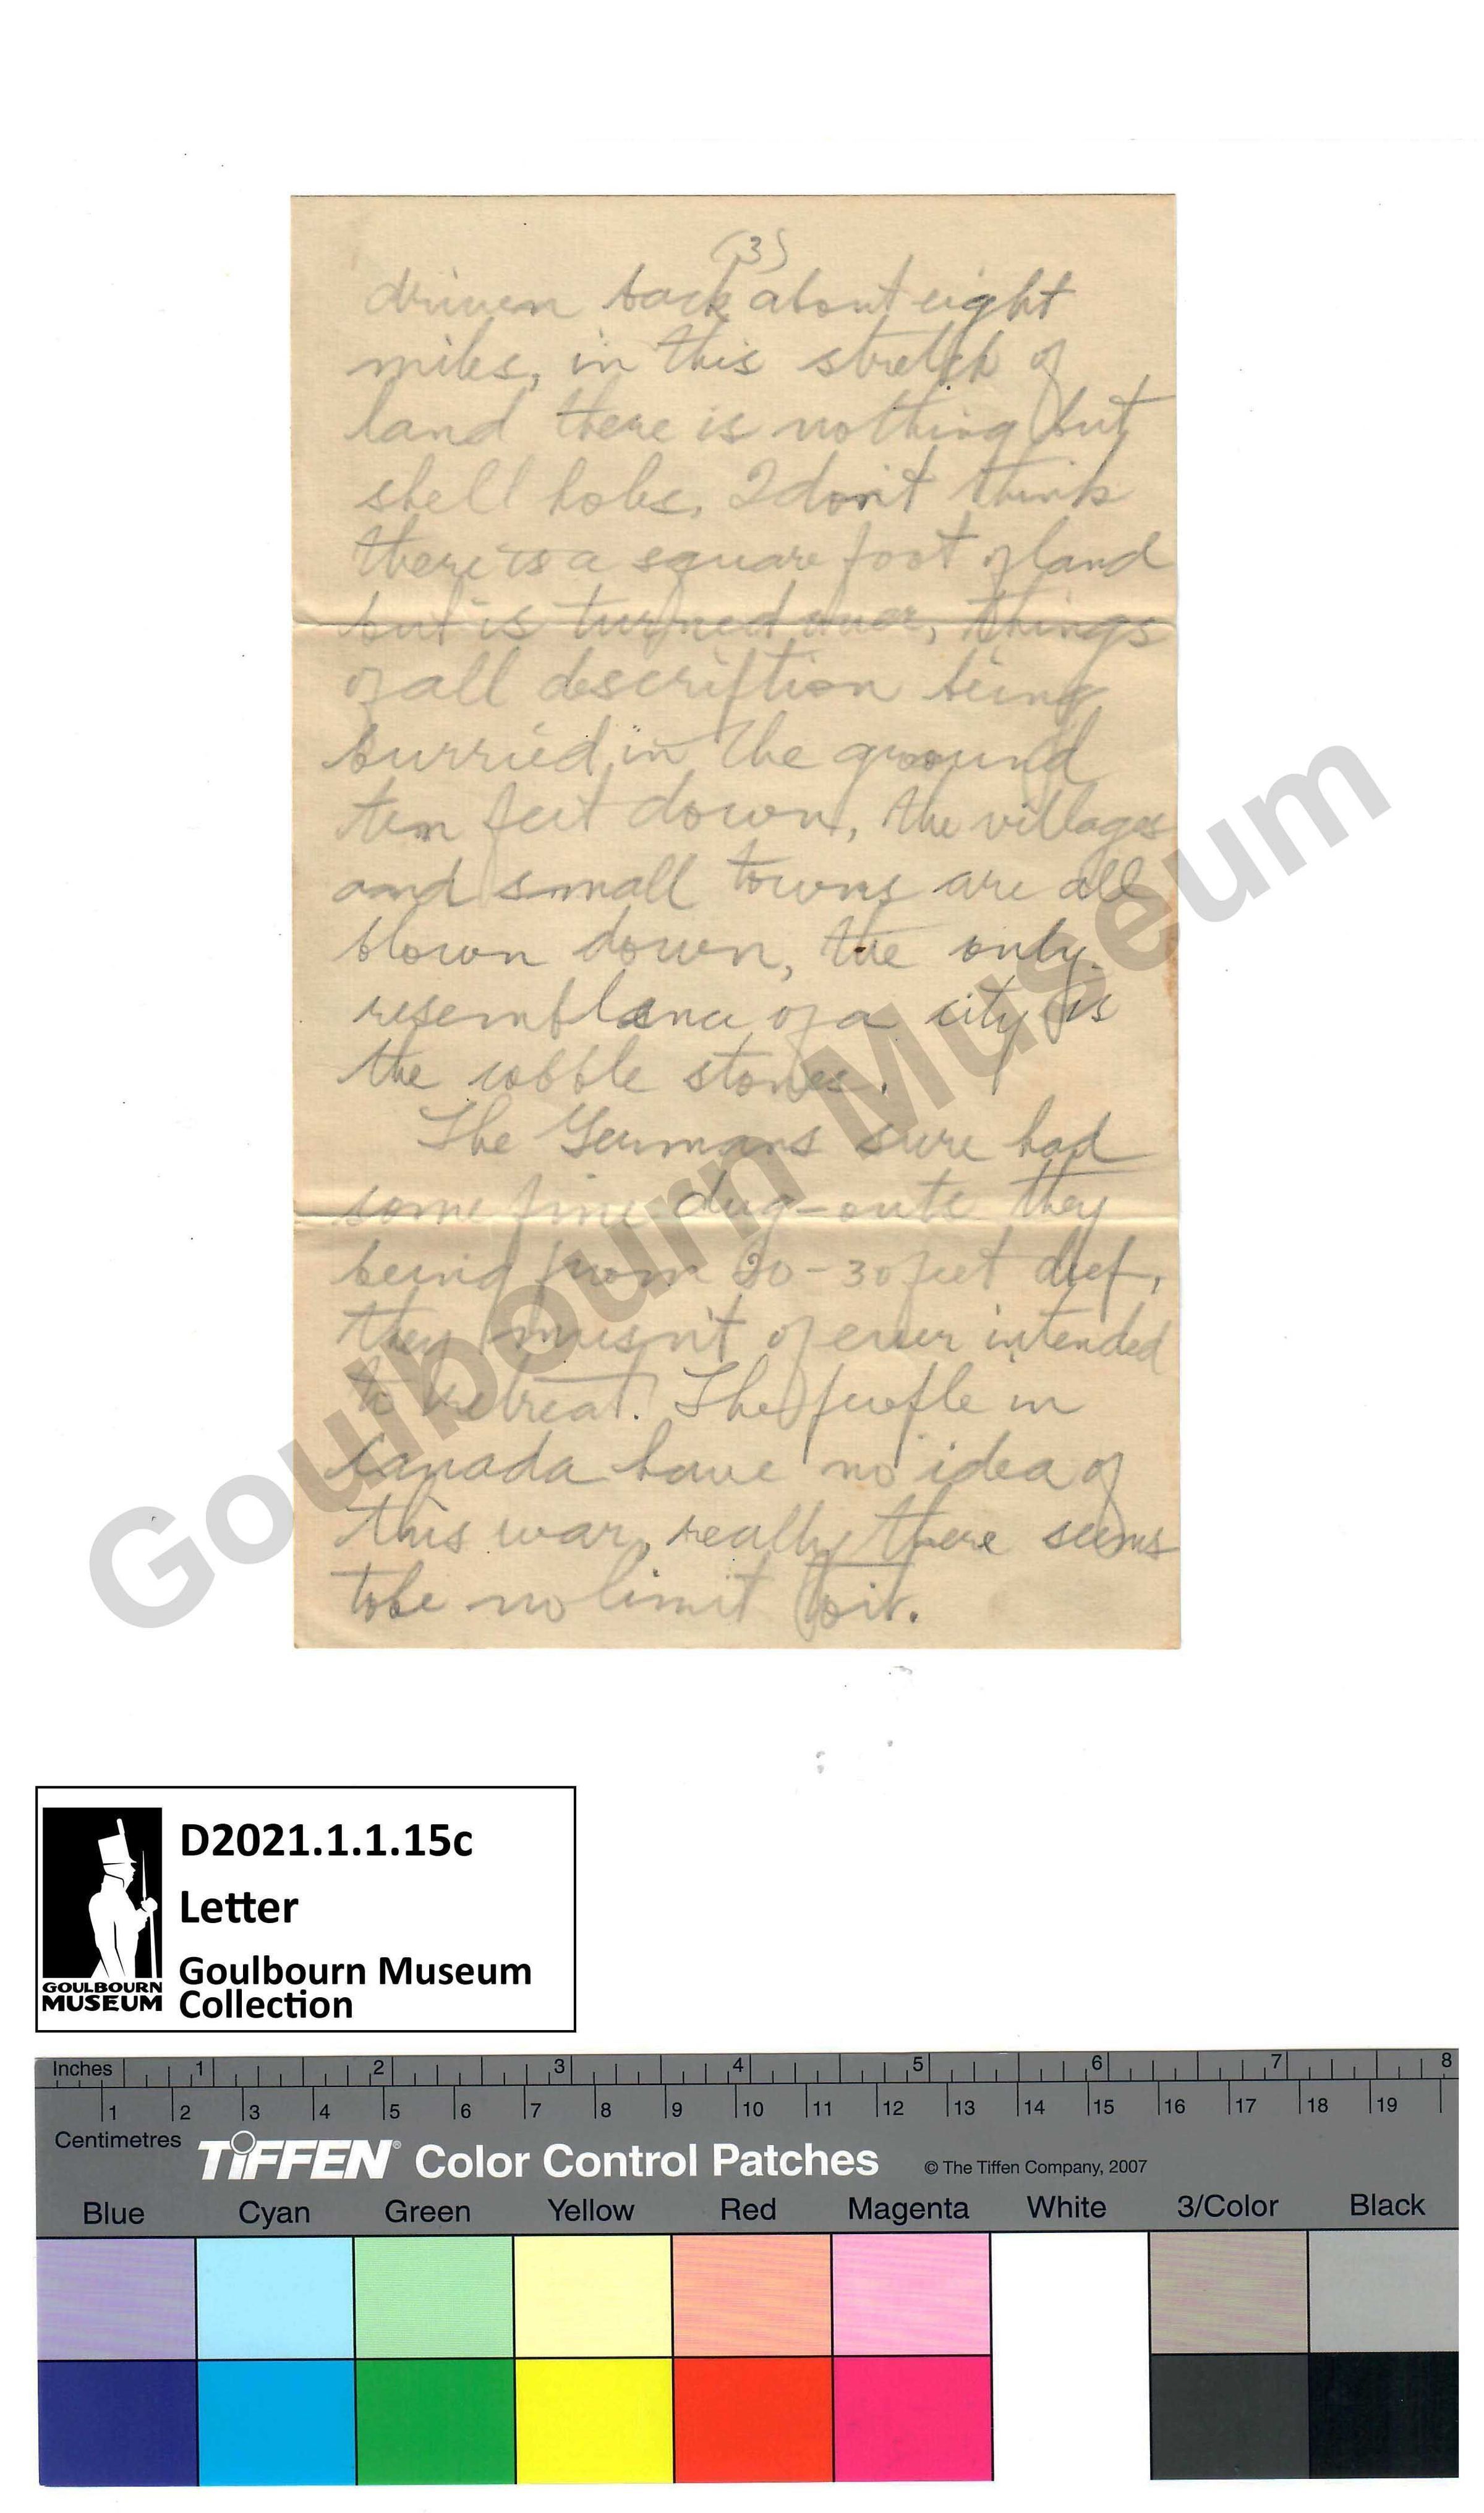 (3)
driven back about eight
miles, in this stretch of
land there is nothing but
shell holes, I don't think
there is a square foot of land
but is turned over, things
of all description being
burried in the ground
ten feet down, the villages
and small towns are all
blown down, the only
resemblance of a city is
the cobble stones.
The Germans sure had
some fine dug-outs they
being from 20-30 feet deep,
they musn't of ever intended
to retreat. The people in
Canada have no idea of
this war, really there seems
to be no limit to it.
Goulbourn Museum
D2021.1.1.15c
Letter
Goulbourn Museum
Collection
GOULBOURN
MUSEUM
Inches 1 2 3 4 5 6 7 8
1 2 3 4 5 6 7 8 9 10 11 12 13 14 15 16 17 18 19
Centimetres
TIFFEN® Color Control Patches © The Tiffen Company, 2007
Blue Cyan Green Yellow Red Magenta White 3/Color Black